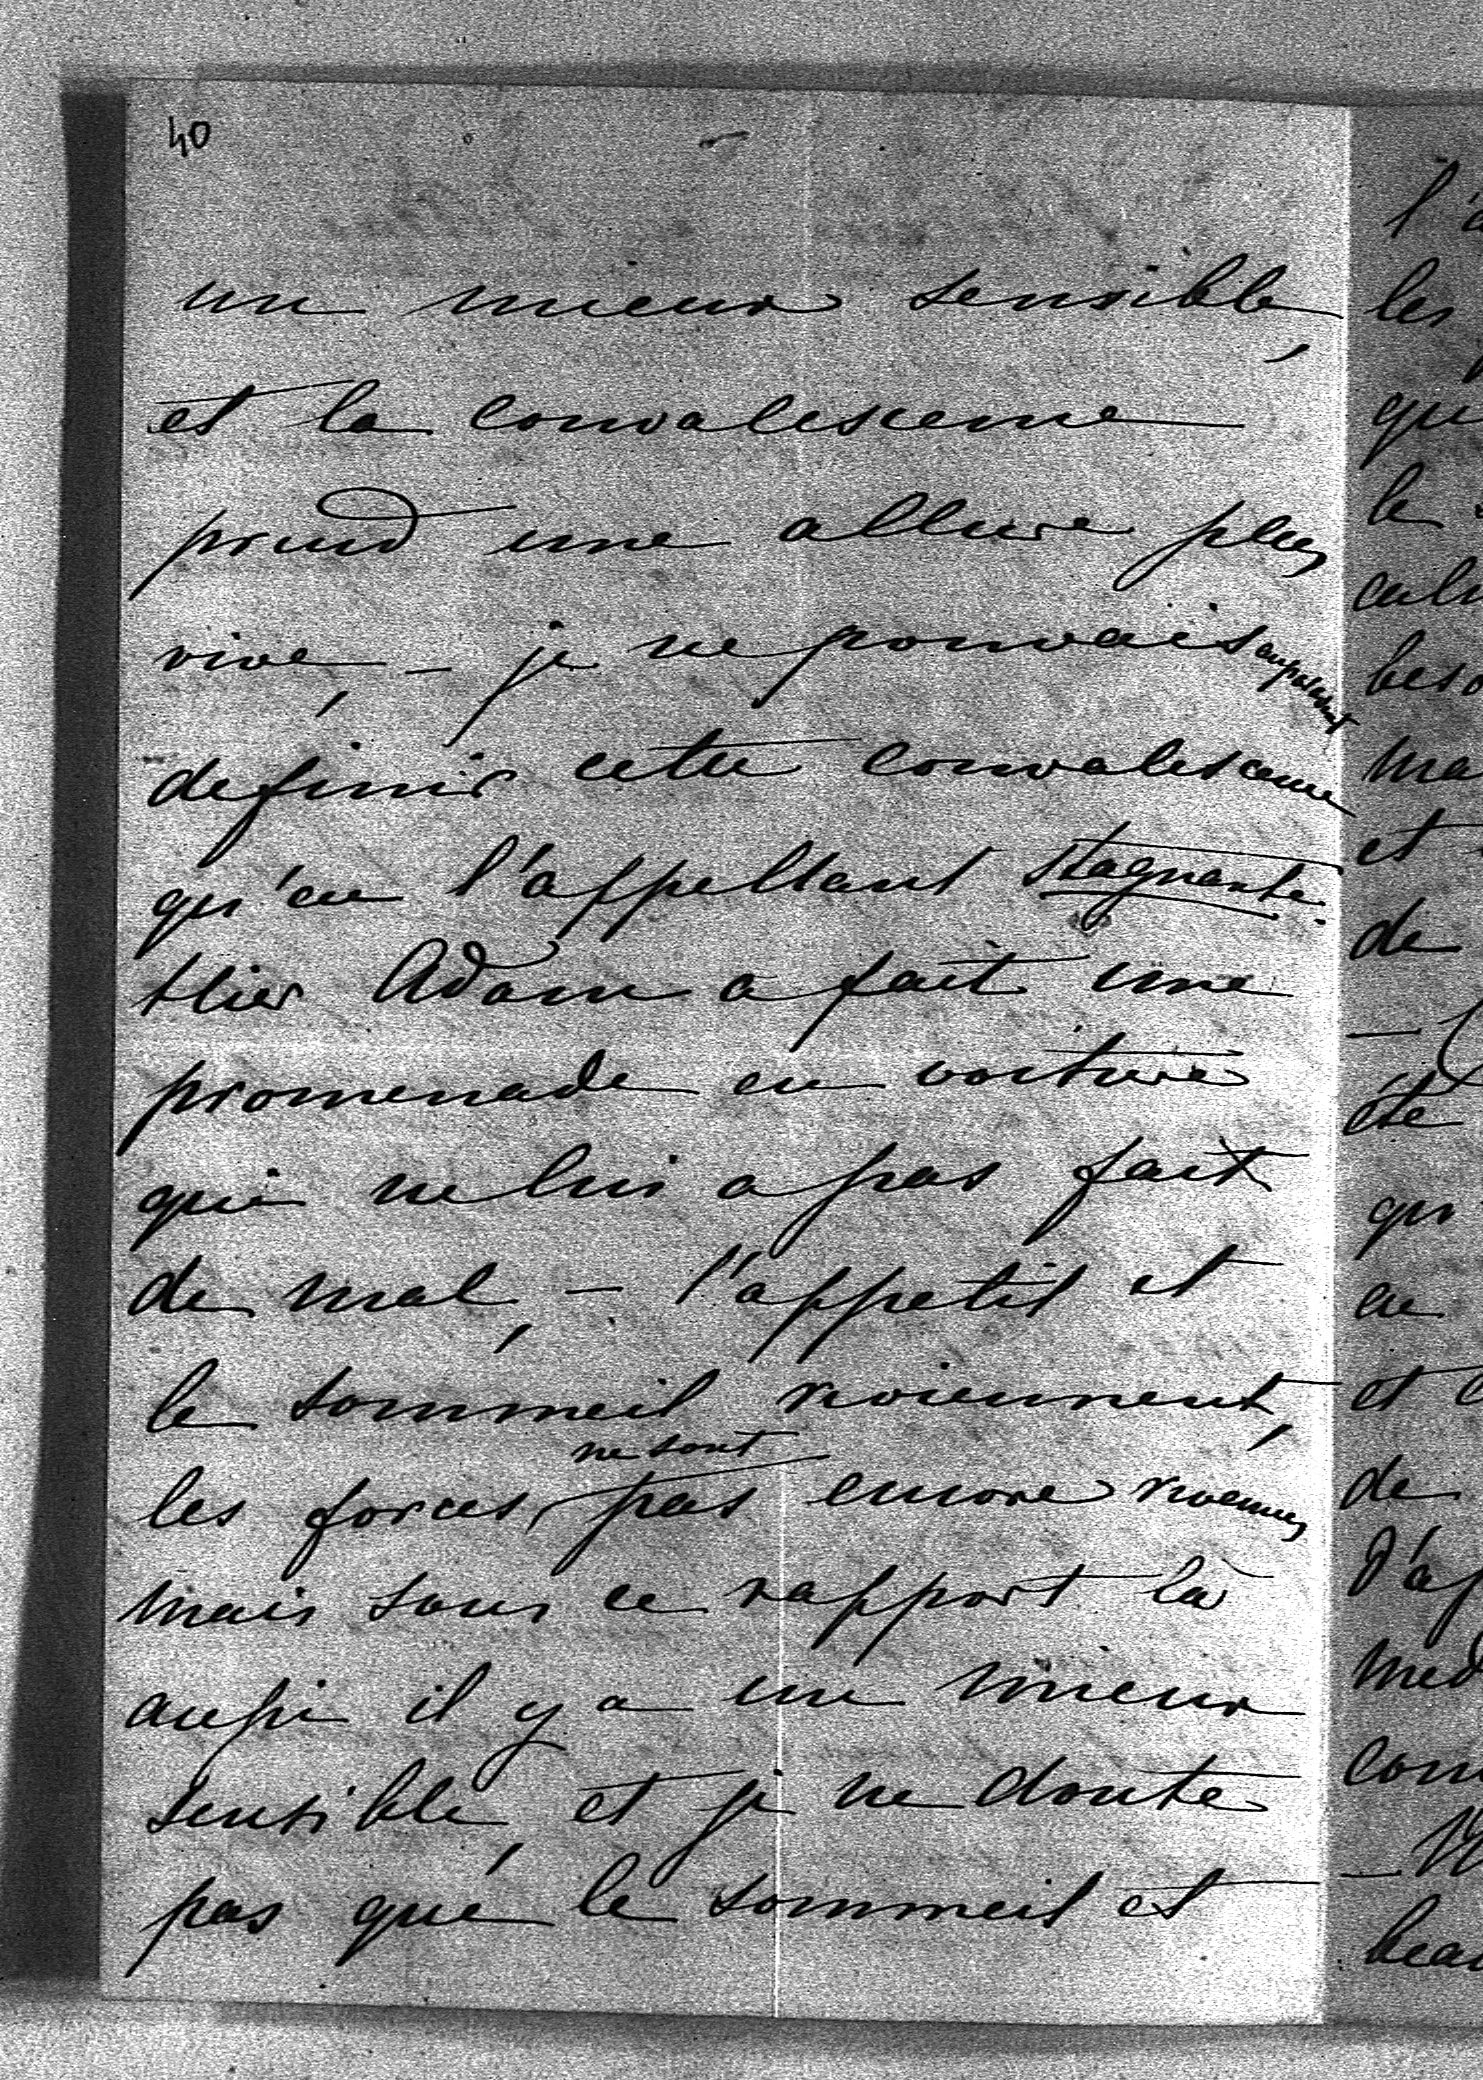 40
un mieux sensible,
et la convalescence
prend une allure plus
vive, - je ne pouvais auparavant
definir cette convalescence
qu'en l'appellant stagnante.
Hier Adam a fait une
promenade en voiture
qui ne lui a pas fait
de mal, - l'appetit et
le sommeil reviennent,
ne sont
les forces, pas encore revenues
mais sous ce rapport là
aussi il y a un mieux
sensible, et je ne doute
pas que le sommeil et
l'a
les
qu
le
cal
beso
ma
et
de
été
qu
en
et
de
d'ap
med
com
beau